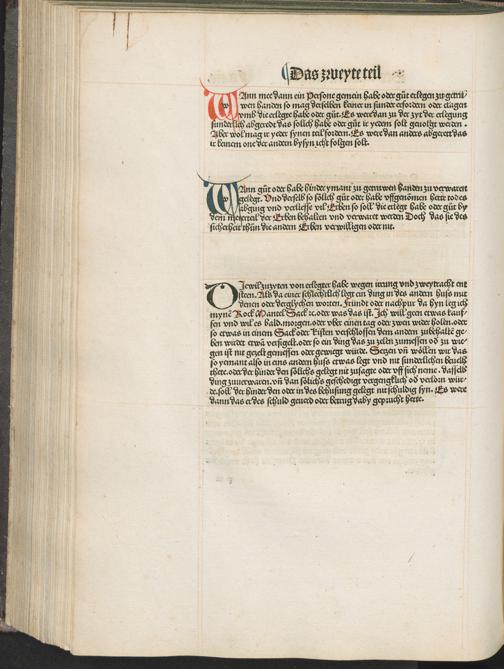 Das zweyte teil
Wann mee dann ein Persone gemein habe oder gůt erlegen zu getru-
wen handen so mag derselben keiner in sunder erfordern oder clagen
vmb die erlegt habe oder gůt. Es wer dan zu der zyt der erlegung
sunderlich abgeredt das solich habe oder gůt ir yedem solt geuolgt werden.
Aber wol mag ir yeder synen teil fordern. Es were dan anders abgeret das
ir keinem one der andern bysyn icht folgen solt.
Wann gůt oder habe hinder ymant zu getruwen handen zu verwaren
gelegt. Vnd derselb so sölich gůt oder habe vffgenōmen hett todes
abging vnd verliesse vil Erben so soll die erlegt habe oder gůt by
dem meisteil der Erben behalten vnd verwaret werden Doch das sie des
sicherheit thün die andern Erben verwilligen oder nit.
DIewil zuzyten von erlegter habe wegen irrung vnd zweytracht ent
sten. Als da einer schlechtlich legt ein ding in des andern huß mit
denen oder derglychen worten. Fründt oder nachpur da hyn leg ich
mynē Rock Mantel Sack ꝛc. oder was das ist. Ich will gen etwas kauf-
fen vnd wil es bald. morgen. oder vber einen tag oder zwen wider holen. oder
so etwas in einem Sack oder Kisten verschlossen dem andern zubehaltē ge-
ben wirdet etwā versigelt. oder so ein ding das zu zelen zumessen od zu wie-
gen ist nit gezelt gemessen oder gewiegt würde. Setzen vn̄ wöllen wir das
so yemant also in eins andern huß etwas legt vnd nit sunderlichen beuelh
thete. oder der hinder den sölichs gelegt nit zusagte oder vff sich neme. dasselb
ding zuuerwaren. vn̄ dan sölichs geschedigt vergengklich od verlorn wür-
de. soll der hinder den oder in des behusung gelegt nit schuldig syn. Es were
dann das er des schuld geuerd oder betrug daby geprucht hette.